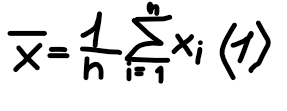 x̄ = 1/n ∑_{i=1}^{n} x_i (1)